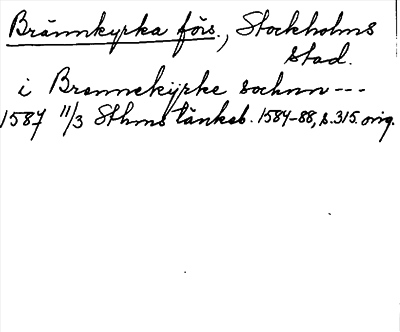 Brännkyrka förs., Stockholms
stad.
i Brennekÿrke sochnn ---
1587 11/3 Sthms tänkeb. 1584-88, s. 315. orig.